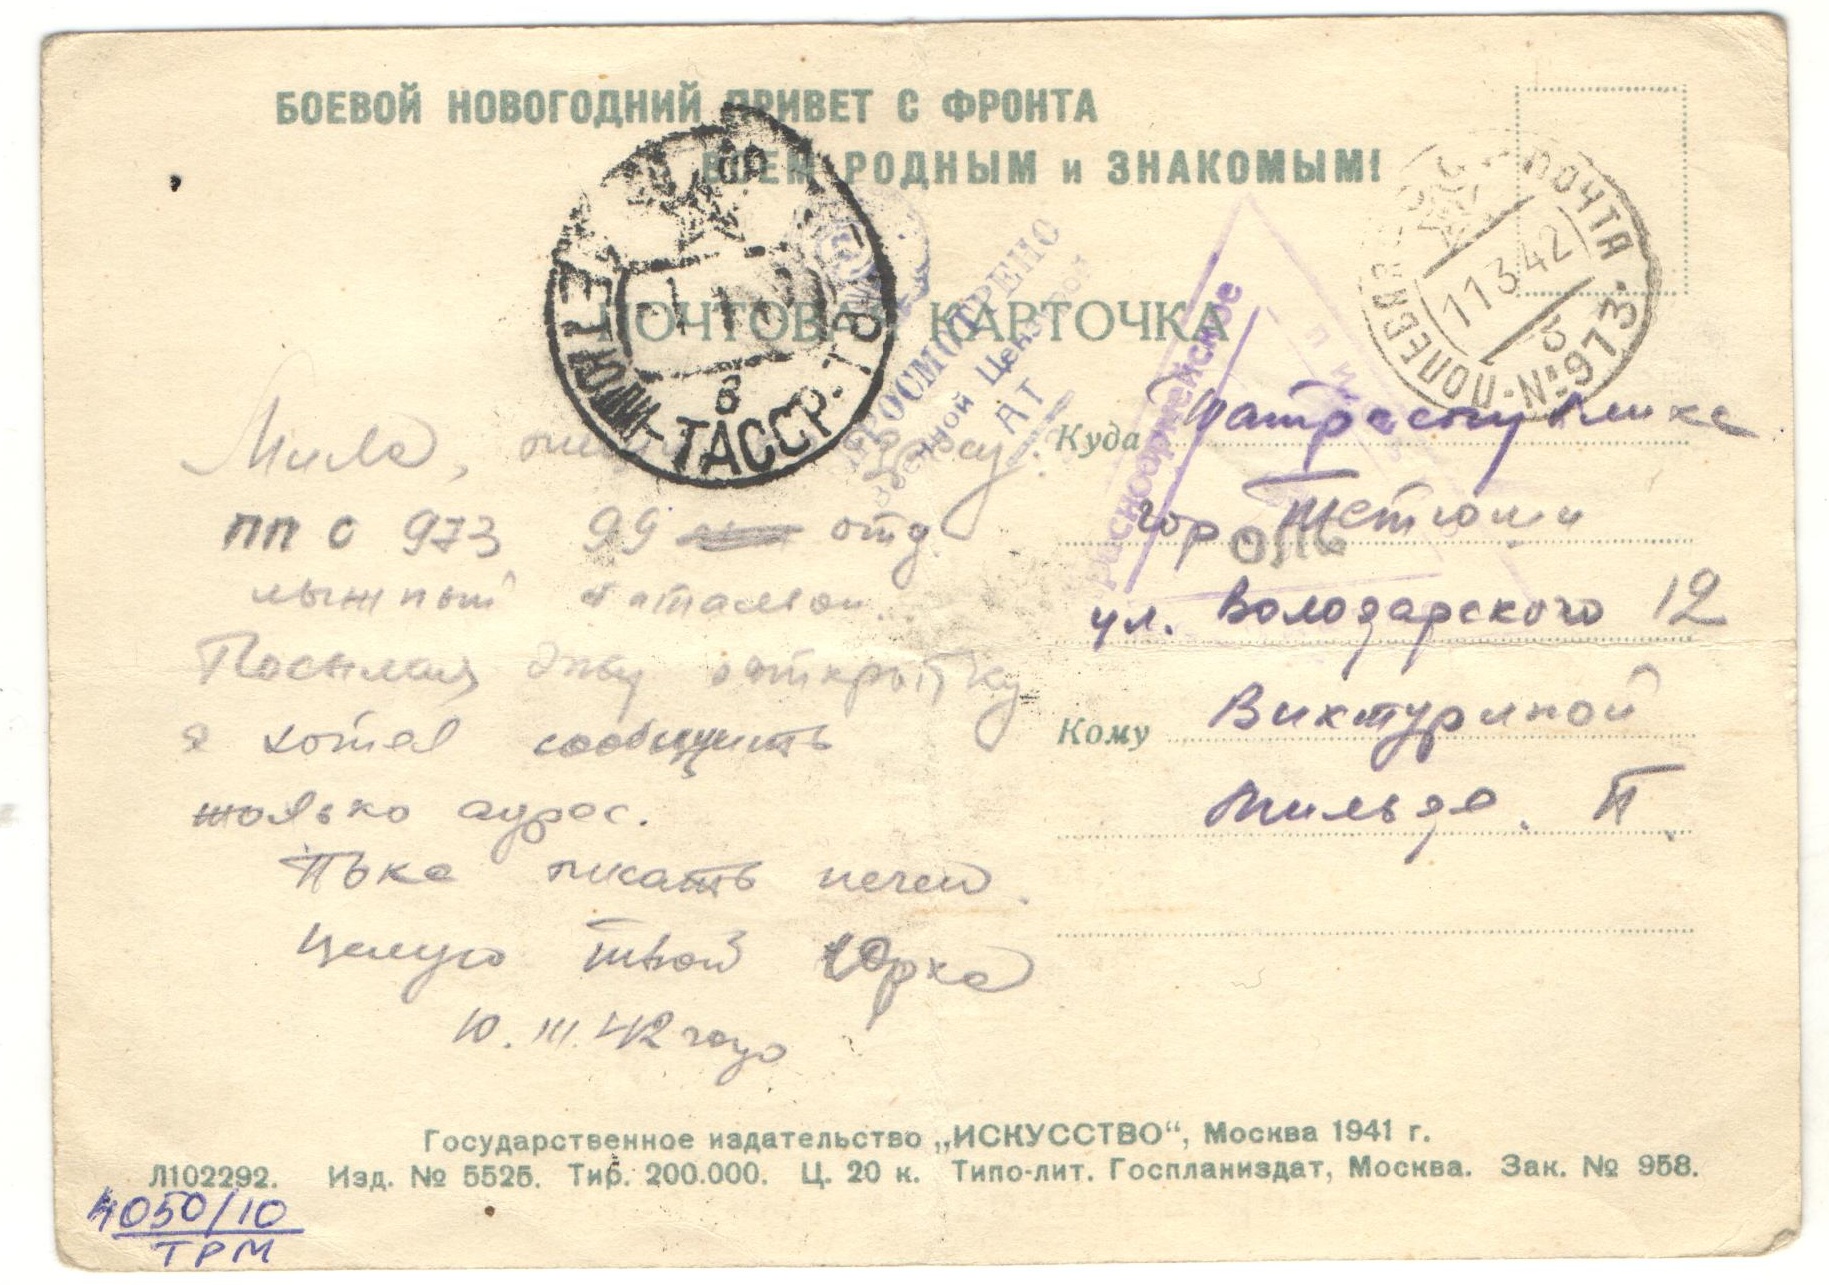 БОЕВОЙ НОВОГОДНИЙ ПРИВЕТ С ФРОНТА
ВСЕМ РОДНЫМ и ЗНАКОМЫМ!
ПОЧТОВАЯ КАРТОЧКА
ТАССР
ПРОСМОТРЕНО
Военной Цензурой
АТ
Красноармейское
ПОЛЕВАЯ ПОЧТА
11 3 42
№ 973
Мила, адресу:
ПП С 973 99 отд
лыжный батальон.
Посылая эту открытку
я хотел сообщить
только адрес.
Пока писать нечего.
Целую твой Юрка
10. III. 42 года
Куда Татреспублика
гор. Тетюши
ул. Володарского 12
Кому Виктуриной
Мильде. П.
Государственное издательство „ИСКУССТВО“, Москва 1941 г.
Л102292. Изд. № 5525. Тир. 200.000. Ц. 20 к. Типо-лит. Госпланиздат, Москва. Зак. № 958.
4050/10
ТРМ